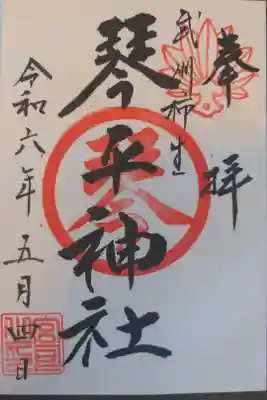 奉拝
武州柿生
琴平神社
令和六年五月四日
琴